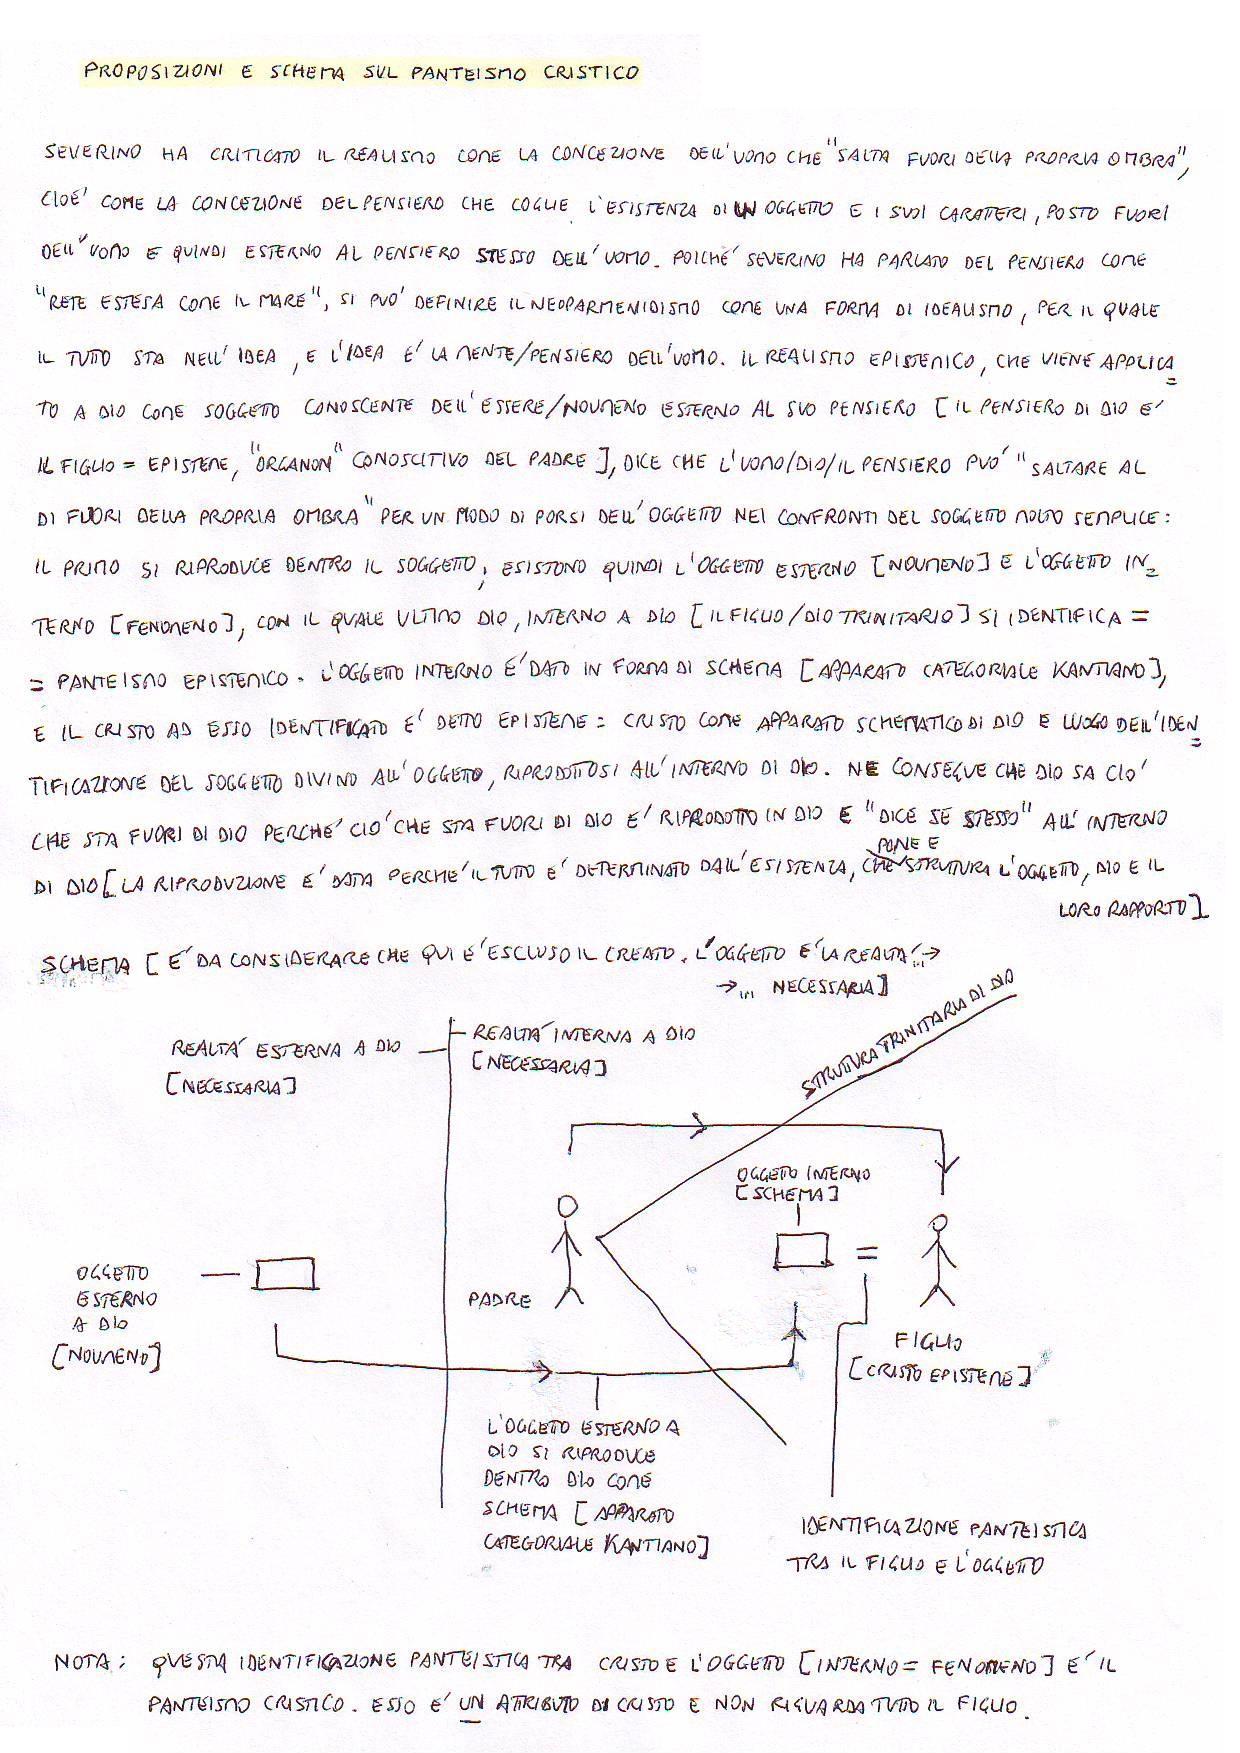 PROPOSIZIONI E SCHEMA SUL PANTEISMO CRISTICO
SEVERINO HA CRITICATO IL REALISMO COME LA CONCEZIONE DELL'UOMO CHE "SALTA FUORI DELLA PROPRIA OMBRA",
CIOE' COME LA CONCEZIONE DEL PENSIERO CHE COGLIE L'ESISTENZA DI UN OGGETTO E I SUOI CARATTERI, POSTO FUORI
DELL'UOMO E QUINDI ESTERNO AL PENSIERO STESSO DELL'UOMO. POICHE' SEVERINO HA PARLATO DEL PENSIERO COME
"RETE ESTESA COME IL MARE", SI PUO' DEFINIRE IL NEOPARMENIDISMO COME UNA FORMA DI IDEALISMO, PER IL QUALE
IL TUTTO STA NELL'IDEA, E L'IDEA E' LA MENTE/PENSIERO DELL'UOMO. IL REALISMO EPISTEMICO, CHE VIENE APPLICA=
TO A DIO COME SOGGETTO CONOSCENTE DELL'ESSERE/NOUMENO ESTERNO AL SUO PENSIERO [IL PENSIERO DI DIO E'
IL FIGLIO = EPISTEME, "ORGANON" CONOSCITIVO DEL PADRE], DICE CHE L'UOMO/DIO/IL PENSIERO PUO' "SALTARE AL
DI FUORI DELLA PROPRIA OMBRA" PER UN MODO DI PORSI DELL'OGGETTO NEI CONFRONTI DEL SOGGETTO MOLTO SEMPLICE:
IL PRIMO SI RIPRODUCE DENTRO IL SOGGETTO; ESISTONO QUINDI L'OGGETTO ESTERNO [NOUMENO] E L'OGGETTO IN=
TERNO [FENOMENO], CON IL QUALE ULTIMO DIO, INTERNO A DIO [IL FIGLIO/DIO TRINITARIO] SI IDENTIFICA =
= PANTEISMO EPISTEMICO. L'OGGETTO INTERNO E' DATO IN FORMA DI SCHEMA [APPARATO CATEGORIALE KANTIANO],
E IL CRISTO AD ESSO IDENTIFICATO E' DETTO EPISTEME = CRISTO COME APPARATO SCHEMATICO DI DIO E LUOGO DELL'IDEN=
TIFICAZIONE DEL SOGGETTO DIVINO ALL'OGGETTO, RIPRODOTTOSI ALL'INTERNO DI DIO. NE CONSEGUE CHE DIO SA CIO'
CHE STA FUORI DI DIO PERCHE' CIO' CHE STA FUORI DI DIO E' RIPRODOTTO IN DIO E "DICE SE STESSO" ALL'INTERNO
PONE E
DI DIO [LA RIPRODUZIONE E' DATA PERCHE' IL TUTTO E' DETERMINATO DALL'ESISTENZA, CHE STRUTTURA L'OGGETTO, DIO E IL
LORO RAPPORTO]
SCHEMA [E' DA CONSIDERARE CHE QUI E' ESCLUSO IL CREATO. L'OGGETTO E' LA REALTA'...→
→... NECESSARIA]
STRUTTURA TRINITARIA DI DIO
REALTA' ESTERNA A DIO
[NECESSARIA]
REALTA' INTERNA A DIO
[NECESSARIA]
OGGETTO INTERNO
[SCHEMA]
=
OGGETTO
ESTERNO
A DIO
[NOUMENO]
PADRE
FIGLIO
[CRISTO EPISTEME]
L'OGGETTO ESTERNO A
DIO SI RIPRODUCE
DENTRO DIO COME
SCHEMA [APPARATO
CATEGORIALE KANTIANO]
IDENTIFICAZIONE PANTEISTICA
TRA IL FIGLIO E L'OGGETTO
NOTA: QUESTA IDENTIFICAZIONE PANTEISTICA TRA CRISTO E L'OGGETTO [INTERNO = FENOMENO] E' IL
PANTEISMO CRISTICO. ESSO E' UN ATTRIBUTO DI CRISTO E NON RIGUARDA TUTTO IL FIGLIO.